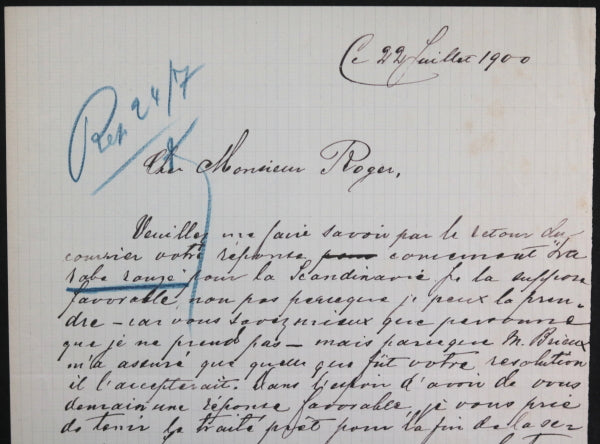 Ce 22 Juillet 1900
Rep. 24/7
Cher Monsieur Roger,
Veuillez me faire savoir par le retour du
courrier votre réponse concernant "La
robe rouge" pour la Scandinavie Je la suppose
favorable, non pas parceque je peux la pren-
dre – car vous savez mieux que personne
que je ne prend pas – mais parceque M. Brieux
m'a assuré que quelle que fût votre resolution
il l'accepterait. Dans l'espoir d'avoir de vous
demain une réponse favorable, je vous prie
de tenir le traité prêt pour la fin de la se